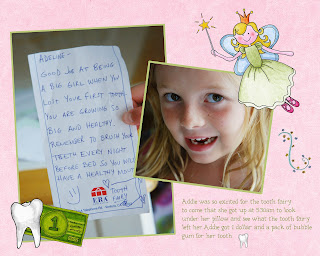 ADELINE-
GOOD JOB AT BEING
A BIG GIRL WHEN YOU
LOST YOUR FIRST TOOTH
YOU ARE GROWING SO
BIG AND HEALTHY.
REMEMBER TO BRUSH YOUR
TEETH EVERY NIGHT
BEFORE BED SO YOU WILL
HAVE A HEALTHY MOUTH
TOOTH
FAIRY
ERA
1
Addie was so excited for the tooth fairy
to come that she got up at 5:30am to look
under her pillow and see what the tooth fairy
left her. Addie got 1 dollar and a pack of bubble
gum for her tooth.